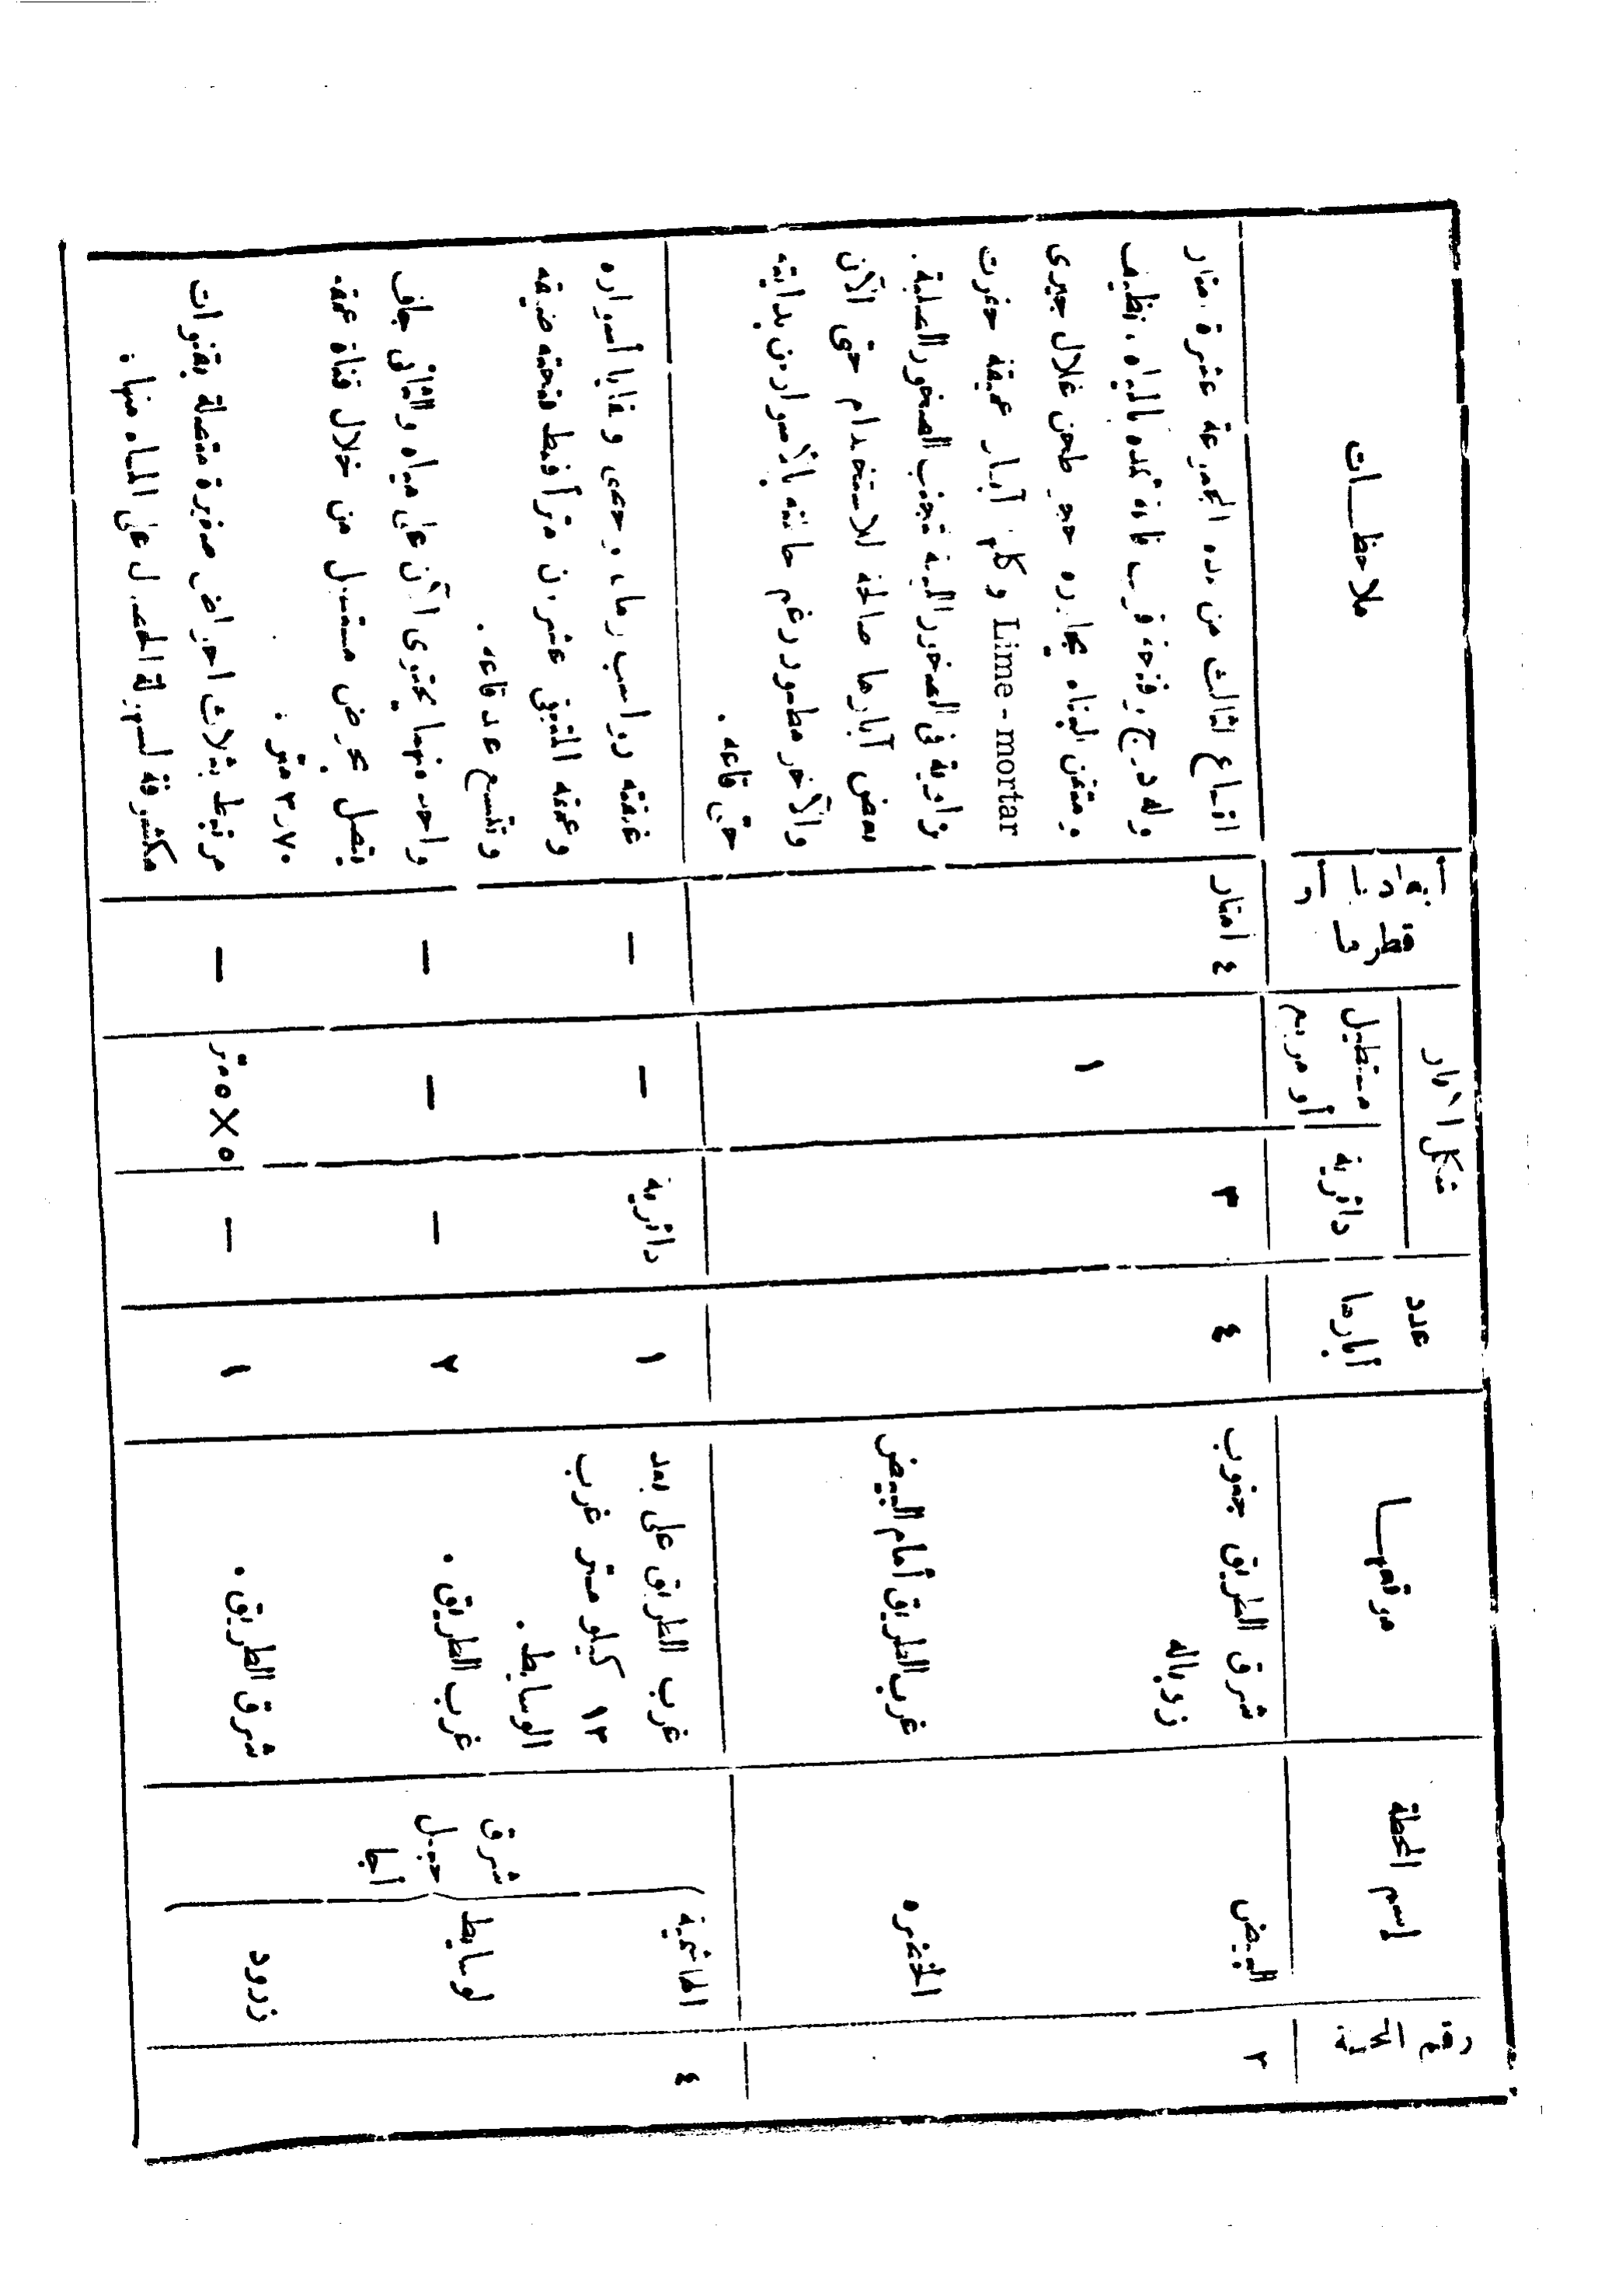 رقم اللوحة
إسم المحطة
موقعها
عدد
آبارها
شكل الآبار
دائرية
مستطيل
أو مربع
أبعادها أو
قطرها
ملاحظات
٣
البيض
شرق الطريق جنوب
زباله
٤
٣
١
٤ امتار
اتساع الثالث من هذه المجموعة عشرة امتار
وله درج، وفتحة قرب قاعه تمده بالمياه، نظيف
ومتقن البناء بجابره حجر طحن غلال جيرى
Lime-mortar وكلها آبار عميقة حفرت
بزاوية فى الصخور اللينة تجنب الصخور الصلبة.
بعض آبارها صالحة للاستخدام حتى الآن
والآخر مطمور رغم حافته بالأسوار من بدايته
حتى قاعه.
الخضره
غرب الطريق أمام البيض
٤
الهاشمية
شرق
جبل
أجا
غرب الطريق على بعد
١٣ كيلو متر غرب
الوسايط.
١
دائرية
—
—
رواسب رمال وحصى وبقايا أسواره
وعمقه المتبقى عشرون متراً فقط فتحته ضيقه
وتتسع عند قاعه.
لوسايط
غرب الطريق.
٢
—
—
—
واحد منهما يحتوى الآن على مياه والثانى جاف
يتصل بحوض مستطيل من خلال قناة عمقه
٣٫٧٠ متر.
زرود
شرق الطريق.
١
—
٥×٥ متر
—
مرتبط بثلاث احواض صغيرة متصلة بقنوات
مكشوفة لسهولة الحصول على المياه منها.